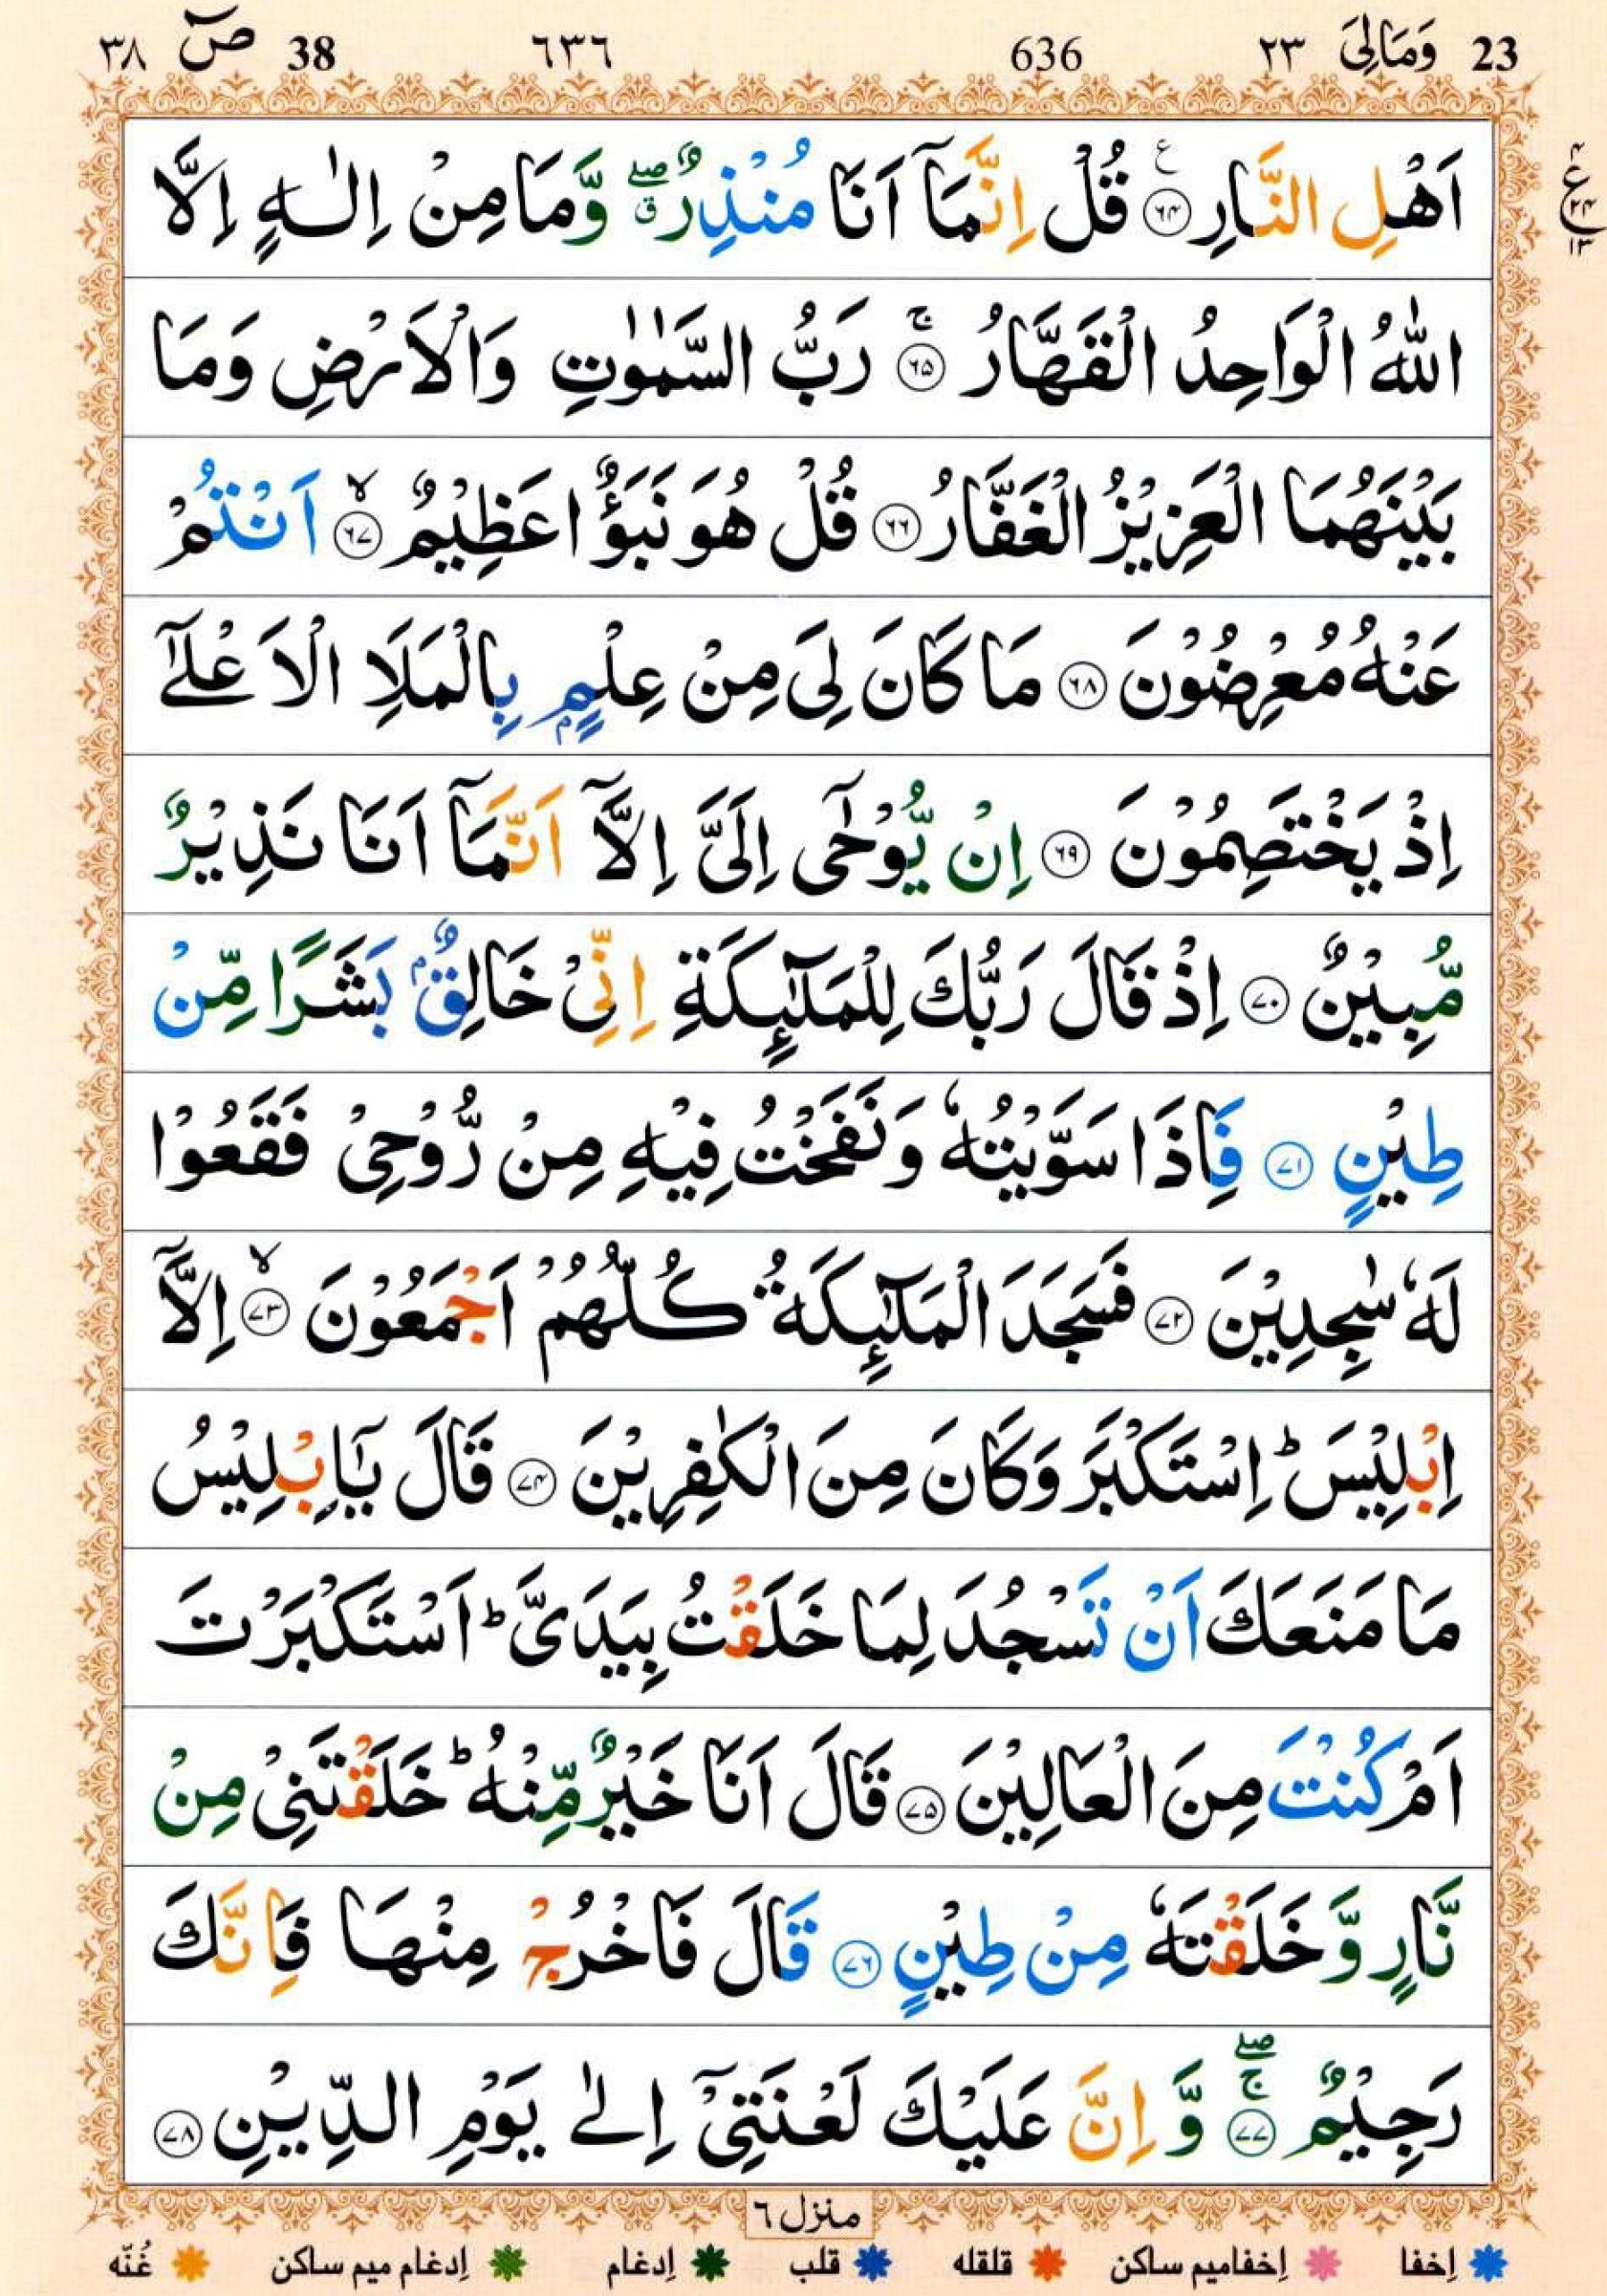 23 وَمَالِیَ ٢٣ 636 ٦٣٦ 38 صٓ ٣٨
اَهْلِ النَّارِ ﴿۶۴﴾ قُلْ اِنَّمَاۤ اَنَا مُنْذِرٌ ۖۗ وَّمَا مِنْ اِلٰهٍ اِلَّا
ع
٤
ع
٢٤
١٣
اللّٰهُ الْوَاحِدُ الْقَهَّارُ ﴿۶۵﴾ۚ رَبُّ السَّمٰوٰتِ وَالْاَرْضِ وَمَا
بَيْنَهُمَا الْعَزِيْزُ الْغَفَّارُ ﴿۶۶﴾ قُلْ هُوَ نَبَؤٌا عَظِيْمٌ ﴿۶۷﴾ۙ اَنْتُمْ
عَنْهُ مُعْرِضُوْنَ ﴿۶۸﴾ مَا كَانَ لِیَ مِنْ عِلْمٍۭ بِالْمَلَاِ الْاَعْلٰۤی
اِذْ يَخْتَصِمُوْنَ ﴿۶۹﴾ اِنْ يُّوْحٰۤی اِلَیَّ اِلَّاۤ اَنَّمَاۤ اَنَا نَذِيْرٌ
مُّبِيْنٌ ﴿۷۰﴾ اِذْ قَالَ رَبُّكَ لِلْمَلٰٓئِكَةِ اِنِّیْ خَالِقٌۢ بَشَرًا مِّنْ
طِيْنٍ ﴿۷۱﴾ فَاِذَا سَوَّيْتُهٗ وَنَفَخْتُ فِيْهِ مِنْ رُّوْحِیْ فَقَعُوْا
لَهٗ سٰجِدِيْنَ ﴿۷۲﴾ فَسَجَدَ الْمَلٰٓئِكَةُ كُلُّهُمْ اَجْمَعُوْنَ ﴿۷۳﴾ۙ اِلَّاۤ
اِبْلِيْسَ ؕ اِسْتَكْبَرَ وَكَانَ مِنَ الْكٰفِرِيْنَ ﴿۷۴﴾ قَالَ يٰۤاِبْلِيْسُ
مَا مَنَعَكَ اَنْ تَسْجُدَ لِمَا خَلَقْتُ بِيَدَیَّ ؕ اَسْتَكْبَرْتَ
اَمْ كُنْتَ مِنَ الْعَالِيْنَ ﴿۷۵﴾ قَالَ اَنَا خَيْرٌ مِّنْهُ ؕ خَلَقْتَنِیْ مِنْ
نَّارٍ وَّخَلَقْتَهٗ مِنْ طِيْنٍ ﴿۷۶﴾ قَالَ فَاخْرُجْ مِنْهَا فَاِنَّكَ
رَجِيْمٌ ﴿۷۷﴾ۚۖ وَّ اِنَّ عَلَيْكَ لَعْنَتِیْۤ اِلٰی يَوْمِ الدِّيْنِ ﴿۷۸﴾
منزل ٦
اِخفا اِخفامیم ساکن قلقله قلب اِدغام اِدغام میم ساکن غُنّه